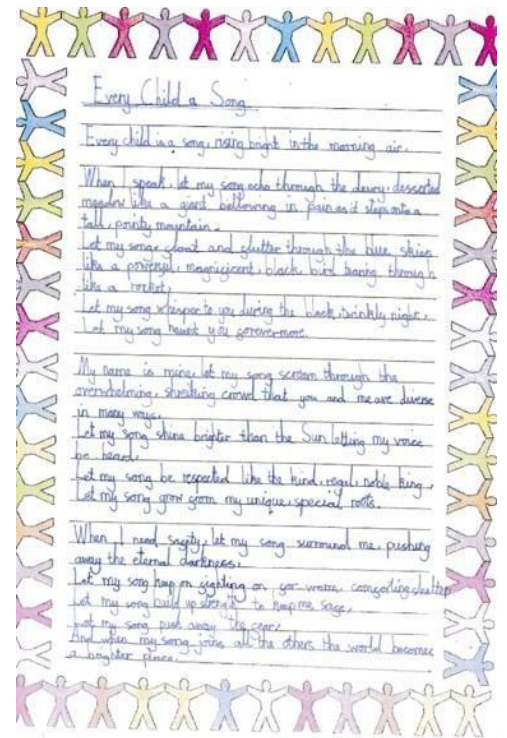 Every Child a Song
Every child is a song, rising bright in the morning air.
When I speak, let my song echo through the dewy, desserted
meadow like a giant bellowing in pain as it steps onto a
tall, pointy mountain.
Let my song float and flutter through the blue skies
like a powerful, magnificent, black bird through
like a rocket,
Let my song whisper to you during the black, night,
Let my song haunt you forevermore.
My name is mine, let my song scream through the
overwhelming, crowd that you and me are diverse
in many ways,
Let my song shine brighter than the Sun letting my voice
be heard,
Let my song be respected like the kind, regal, noble king,
Let my song grow from my unique, special roots.
When I need safety, let my song surround me, pushing
away the eternal darkness,
Let my song keep on fighting on for warm, comforting shelter
Let my song build up strength to keep me safe,
Let my song push away the fear,
And when my song joins all the others the world becomes
a brighter place.